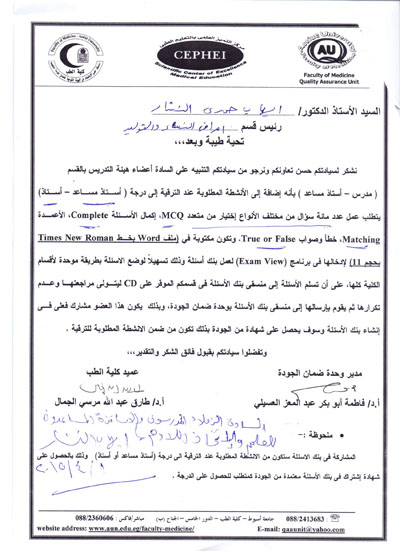 مركز التميز العلمى بالتعليم الطبى
CEPHEI
Scientific Center of Excellence
Medical Education
كلية الطب
AU
Faculty of Medicine
Quality Assurance Unit
السيد الأستاذ الدكتور/ ايهاب حمدى
رئيس قسم امراض النساء والتوليد
تحية طيبة وبعد،،،
نشكر لسيادتكم حسن تعاونكم ونرجو من سيادتكم التنبيه علي السادة أعضاء هيئة التدريس بالقسم
( مدرس – أستاذ مساعد ) بأنه إضافة إلى الأنشطة المطلوبة عند الترقية إلى درجة ( أستاذ مساعد – أستاذ)
يتطلب عمل عدد مائة سؤال من مختلف الأنواع إختيار من متعدد MCQ، إكمال الأسئلة Complete، الأعمدة
Matching، خطأ وصواب True or False. وتكون مكتوبة في (ملف Word بخط Times New Roman
بحجم 11) لإدخالها فى برنامج (Exam View) لعمل بنك أسئلة وذلك تسهيلاً لوضع الاسئلة بطريقة موحدة لأقسام
الكلية كلها، على أن تسلم الأسئلة إلى منسقى بنك الأسئلة فى قسمكم الموقر على CD ليتولى مراجعتها وعدم
تكرارها ثم يقوم بإرسالها إلى منسقى بنك الأسئلة بوحدة ضمان الجودة، وبذلك يكون هذا العضو مشارك فعلى فى
إنشاء بنك الأسئلة وسوف يحصل على شهادة من الجودة بذلك تكون من ضمن الانشطة المطلوبة للترقية .
وتفضلوا سيادتكم بقبول فائق الشكر والتقدير،،،
مدير وحدة ضمان الجودة
عميد كلية الطب
أ.د/ فاطمة أبو بكر عبد المعز العسيلي
أ.د/ طارق عبد الله مرسي الجمال
السادة الزملاء المدرسون والاساتذة المساعدون
• ملحوظة :-
للعلم
المشاركة فى بنك الاسئلة ستكون من الانشطة المطلوبة عند الترقية الى درجة (أستاذ مساعد أو أستاذ) وذلك بالحصول على
شهادة إشترك فى بنك الأسئلة معتمدة من الجودة كمتطلب للحصول على الدرجة .
٢٠١٥/٤/١
088/2413683 جامعة أسيوط – كلية الطب – الدور الخامس – الجناح (ب) مباشر/فاكس : 088/2360606
website address: www.aun.edu.eg/faculty-medicine/ email: qaaunit@yahoo.com